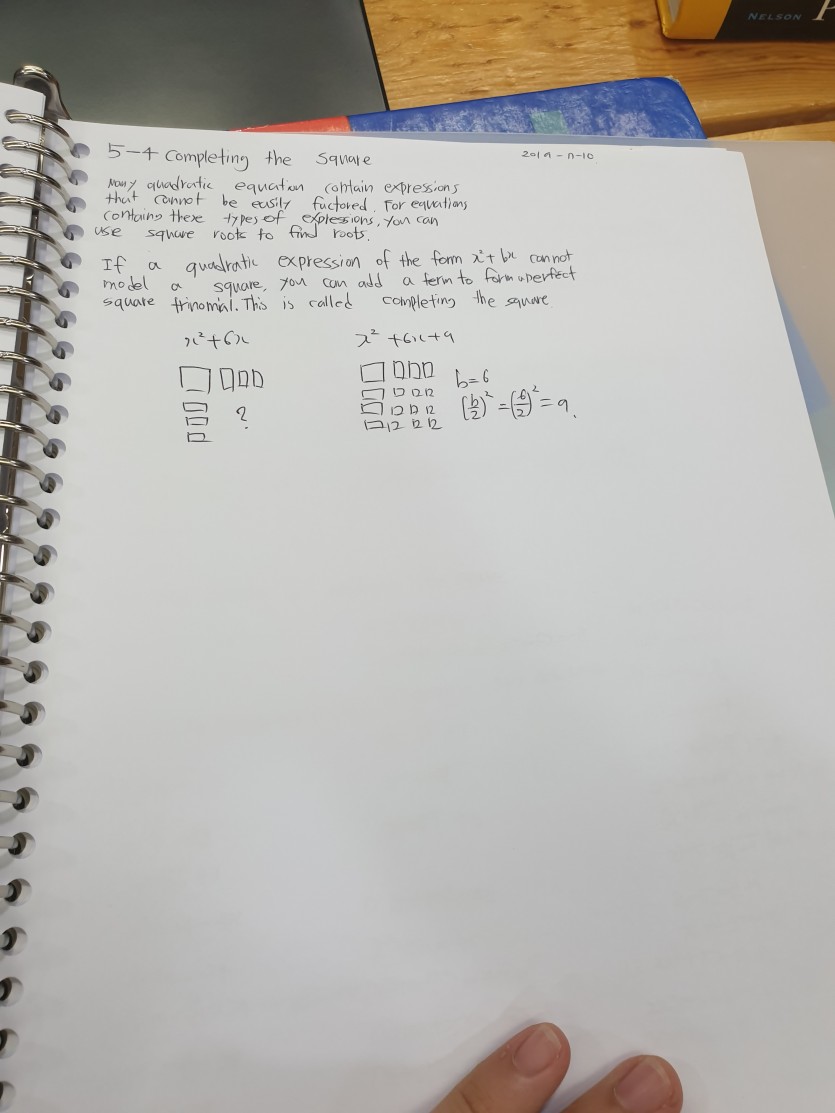 NELSON P
5-4 Completing the square
2019-11-10
Many quadratic equation contain expressions
that cannot be easily factored. For equations
contains these types of expressions, you can
use square roots to find roots.
If a quadratic expression of the form x²+bx cannot
model a square, you can add a term to form a perfect
square trinomial. This is called completing the square
x²+6x x²+6x+9
b=6
? (b/2)² = (6/2)² = 9.